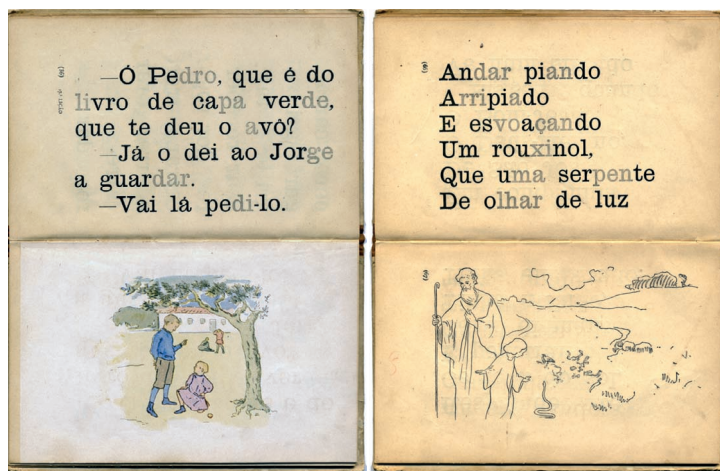 —Ó Pedro, que é do
livro de capa verde,
que te deu o avô?
—Já o dei ao Jorge
a guardar.
—Vai lá pedi-lo.
Andar piando
Arripiado
E esvoaçando
Um rouxinol,
Que uma serpente
De olhar de luz